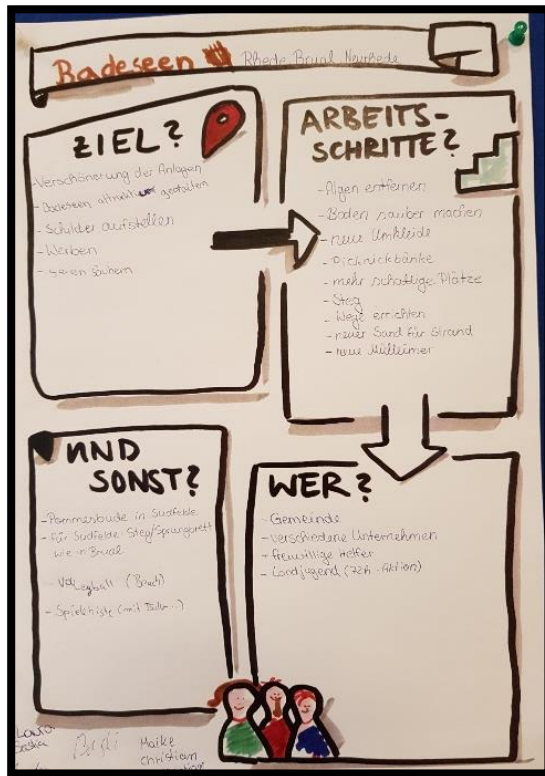 Badeseen Rhede Brual Neurhede
ZIEL?
- Verschönerung der Anlagen
- Badeseen attraktiver gestalten
- Schilder aufstellen
- Werben
- Seen säubern
ARBEITS-
SCHRITTE?
- Algen entfernen
- Boden sauber machen
- neue Umkleide
- Picknickbänke
- mehr schattige Plätze
- Steg
- Wege errichten
- neuer Sand für Strand
- neue Mülleimer
UND
SONST?
- Pommesbude in Sudfelde
- für Sudfelde Steg/Sprungbrett
wie in Brual
- Volleyball (Beach)
- Spielkiste (mit
WER?
- Gemeinde
- verschiedene Unternehmen
- freiwillige Helfer
- Landjugend (72h-Aktion)
Laura
Maike
Christian